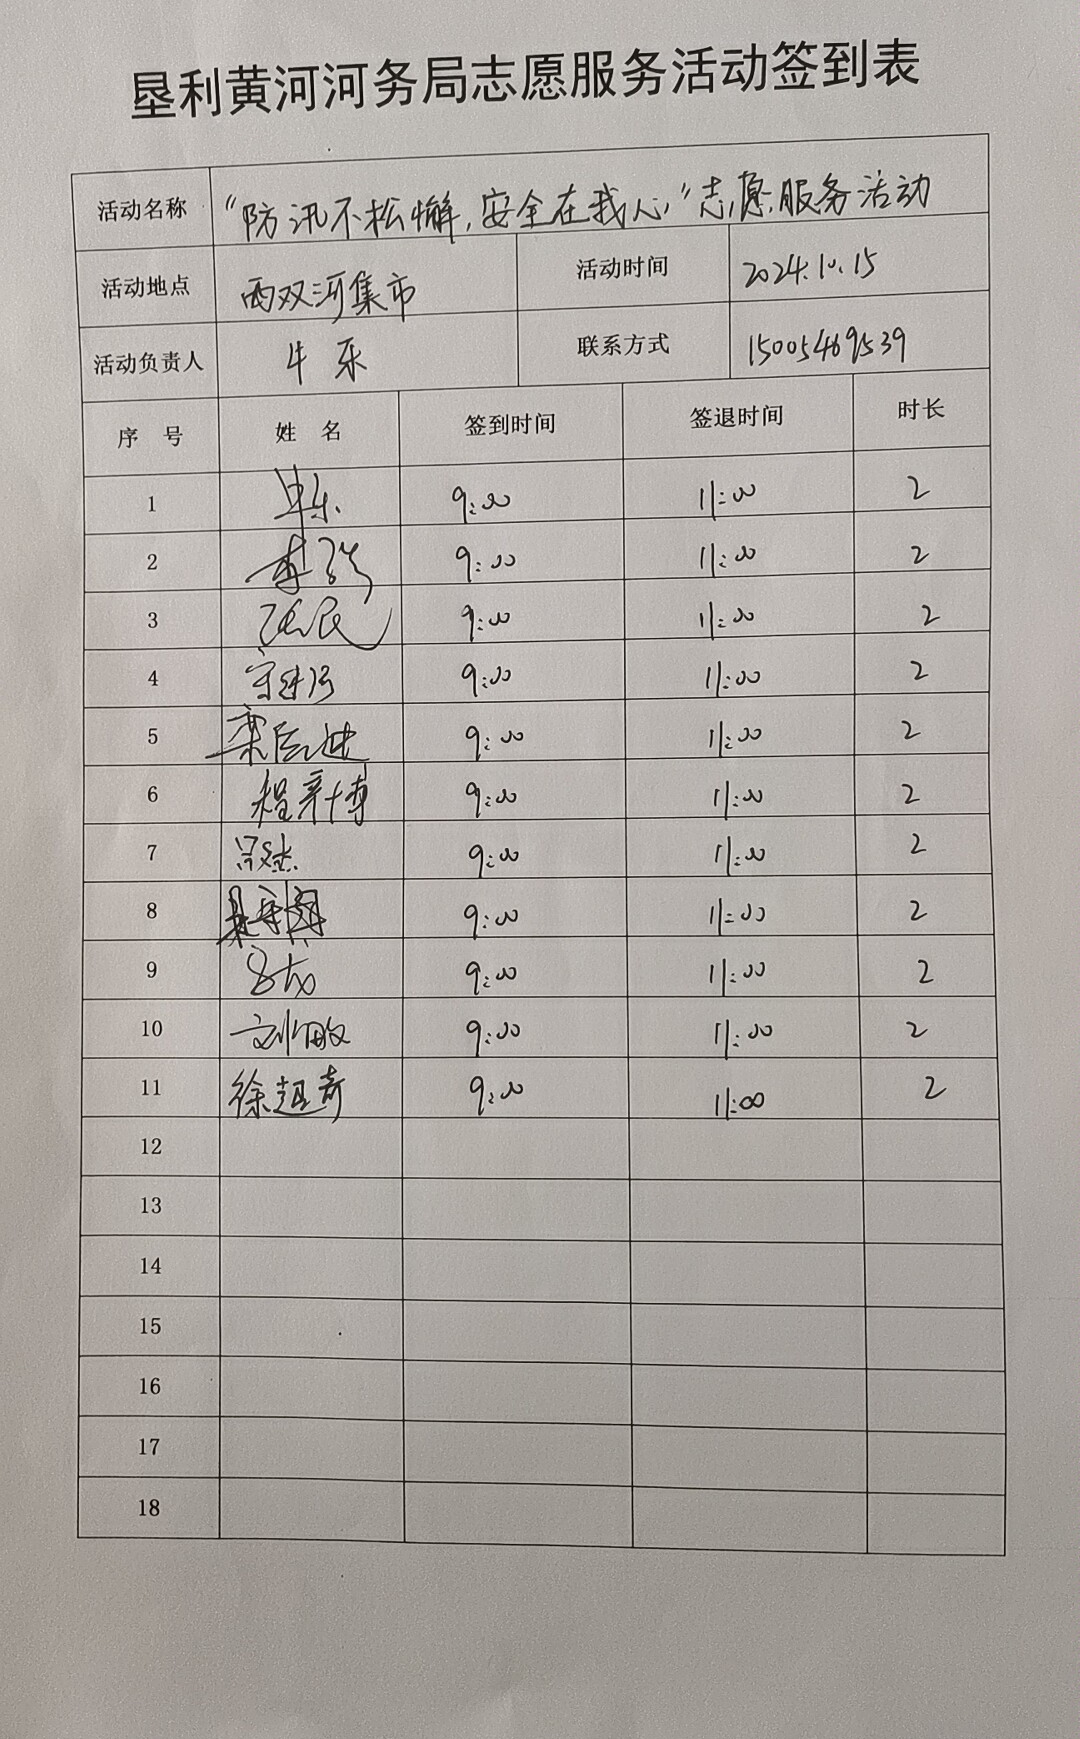 垦利黄河河务局志愿服务活动签到表
活动名称 "防汛不松懈,安全在我心"志愿服务活动
活动地点 西双河集市 活动时间 2024.10.15
活动负责人 牛乐 联系方式 15005469539
序 号 姓 名 签到时间 签退时间 时长
1 牛乐 9:00 11:00 2
2 9:00 11:00 2
3 9:00 11:00 2
4 9:00 11:00 2
5 9:00 11:00 2
6 程新博 9:00 11:00 2
7 9:00 11:00 2
8 9:00 11:00 2
9 9:00 11:00 2
10 刘敏 9:00 11:00 2
11 徐超奇 9:00 11:00 2
12
13
14
15
16
17
18